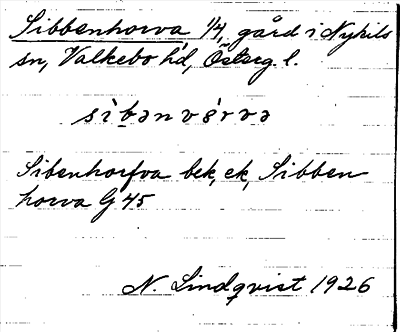 Sibbenhorva 1/4, gård i Nykils
sn, Valkebo hd, Österg. l.
sìbənvórvə
Sibenhorfva bek, ek, Sibben
horva G 45
N. Lindqvist 1926